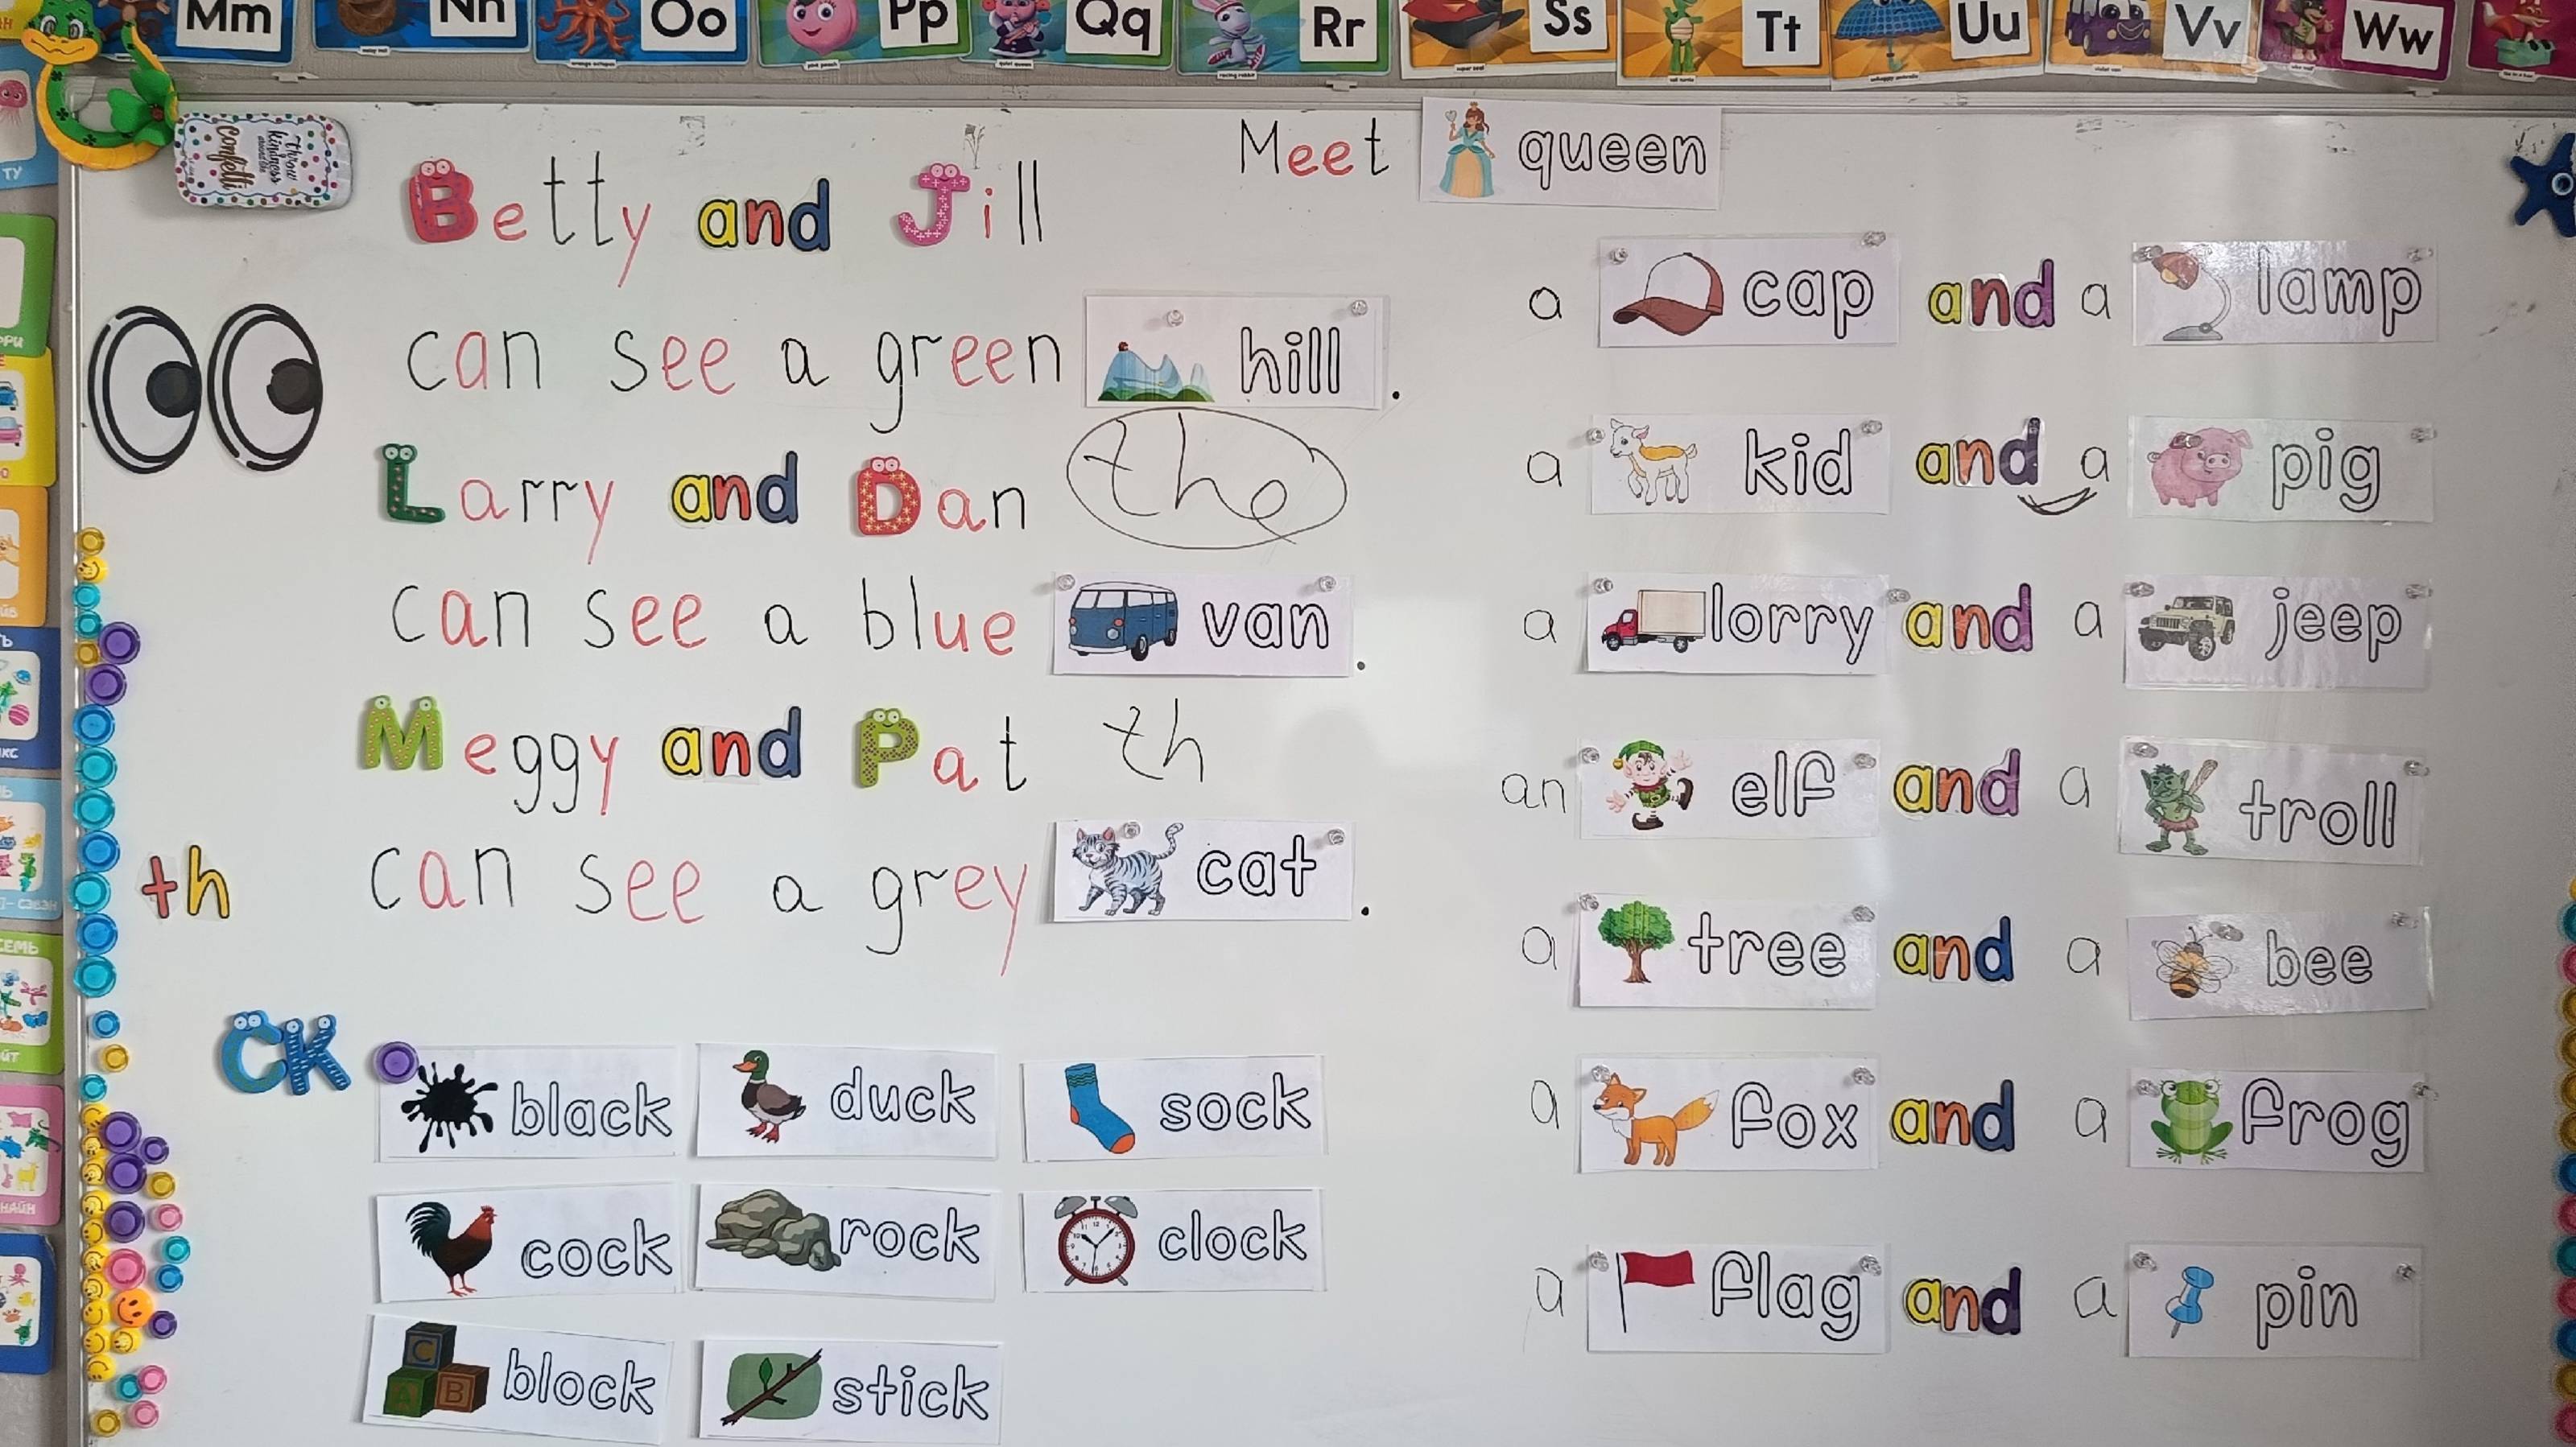 Mm Nn Oo Pp Qq Rr Ss Tt Uu Vv Ww
Throw kindness around like Confetti
Betty and Jill
can see a green hill.
the
Larry and Dan
can see a blue van.
Meggy and Pat
th
can see a grey cat.
th
CK
black duck sock
cock rock clock
C A B block stick
Meet queen
a cap and a lamp
a kid and a pig
a lorry and a jeep
an elf and a troll
a tree and a bee
a fox and a frog
a flag and a pin